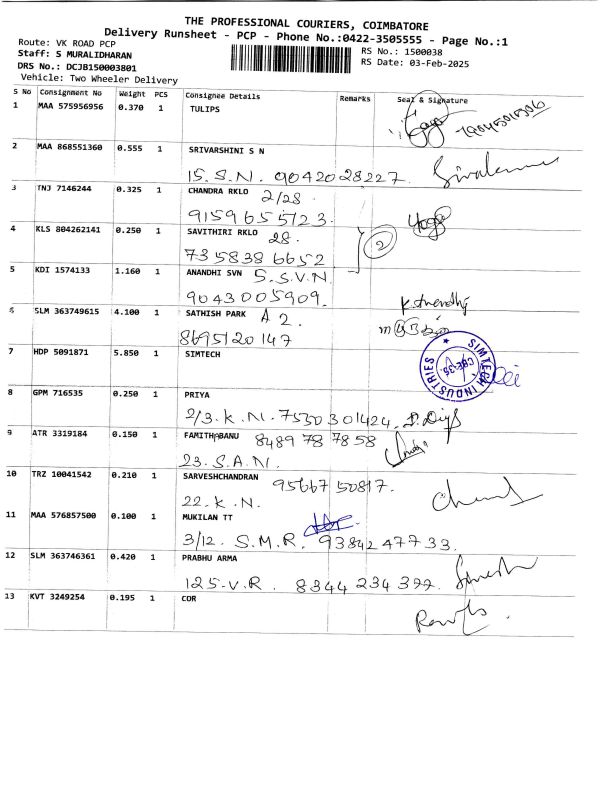 THE PROFESSIONAL COURIERS, COIMBATORE
Delivery Runsheet - PCP - Phone No.:0422-3505555 - Page No.:1
Route: VK ROAD PCP
Staff: S MURALIDHARAN
DRS No.: DCJB150003801
Vehicle: Two Wheeler Delivery
RS No.: 1500038
RS Date: 03-Feb-2025
S No Consignment No Weight PCS Consignee Details Remarks Seal & Signature
1 MAA 575956956 0.370 1 TULIPS
2 MAA 868551360 0.555 1 SRIVARSHINI S N
15. S. N. 9042028227.
3 TNJ 7146244 0.325 1 CHANDRA RKLO 2/28
9159655123.
4 KLS 804262141 0.250 1 SAVITHIRI RKLO 28. 2
7358386652
5 KDI 1574133 1.160 1 ANANDHI SVN S. S.V.N.
9043005909.
6 SLM 363749615 4.100 1 SATHISH PARK A 2.
8695120147
7 HDP 5091871 5.850 1 SIMTECH
SIMTECH INDUSTRIES
8 GPM 716535 0.250 1 PRIYA
2/3. K. N. 7530301424.
9 ATR 3319184 0.150 1 FAMITHABANU 8489787858
23. S. A. N.
10 TRZ 10041542 0.210 1 SARVESHCHANDRAN 9566750817.
22. K. N.
11 MAA 576857500 0.100 1 MUKILAN TT
3/12. S. M. R. 9384247733.
12 SLM 363746361 0.420 1 PRABHU ARMA
125. V. R. 8344234399.
13 KVT 3249254 0.195 1 COR